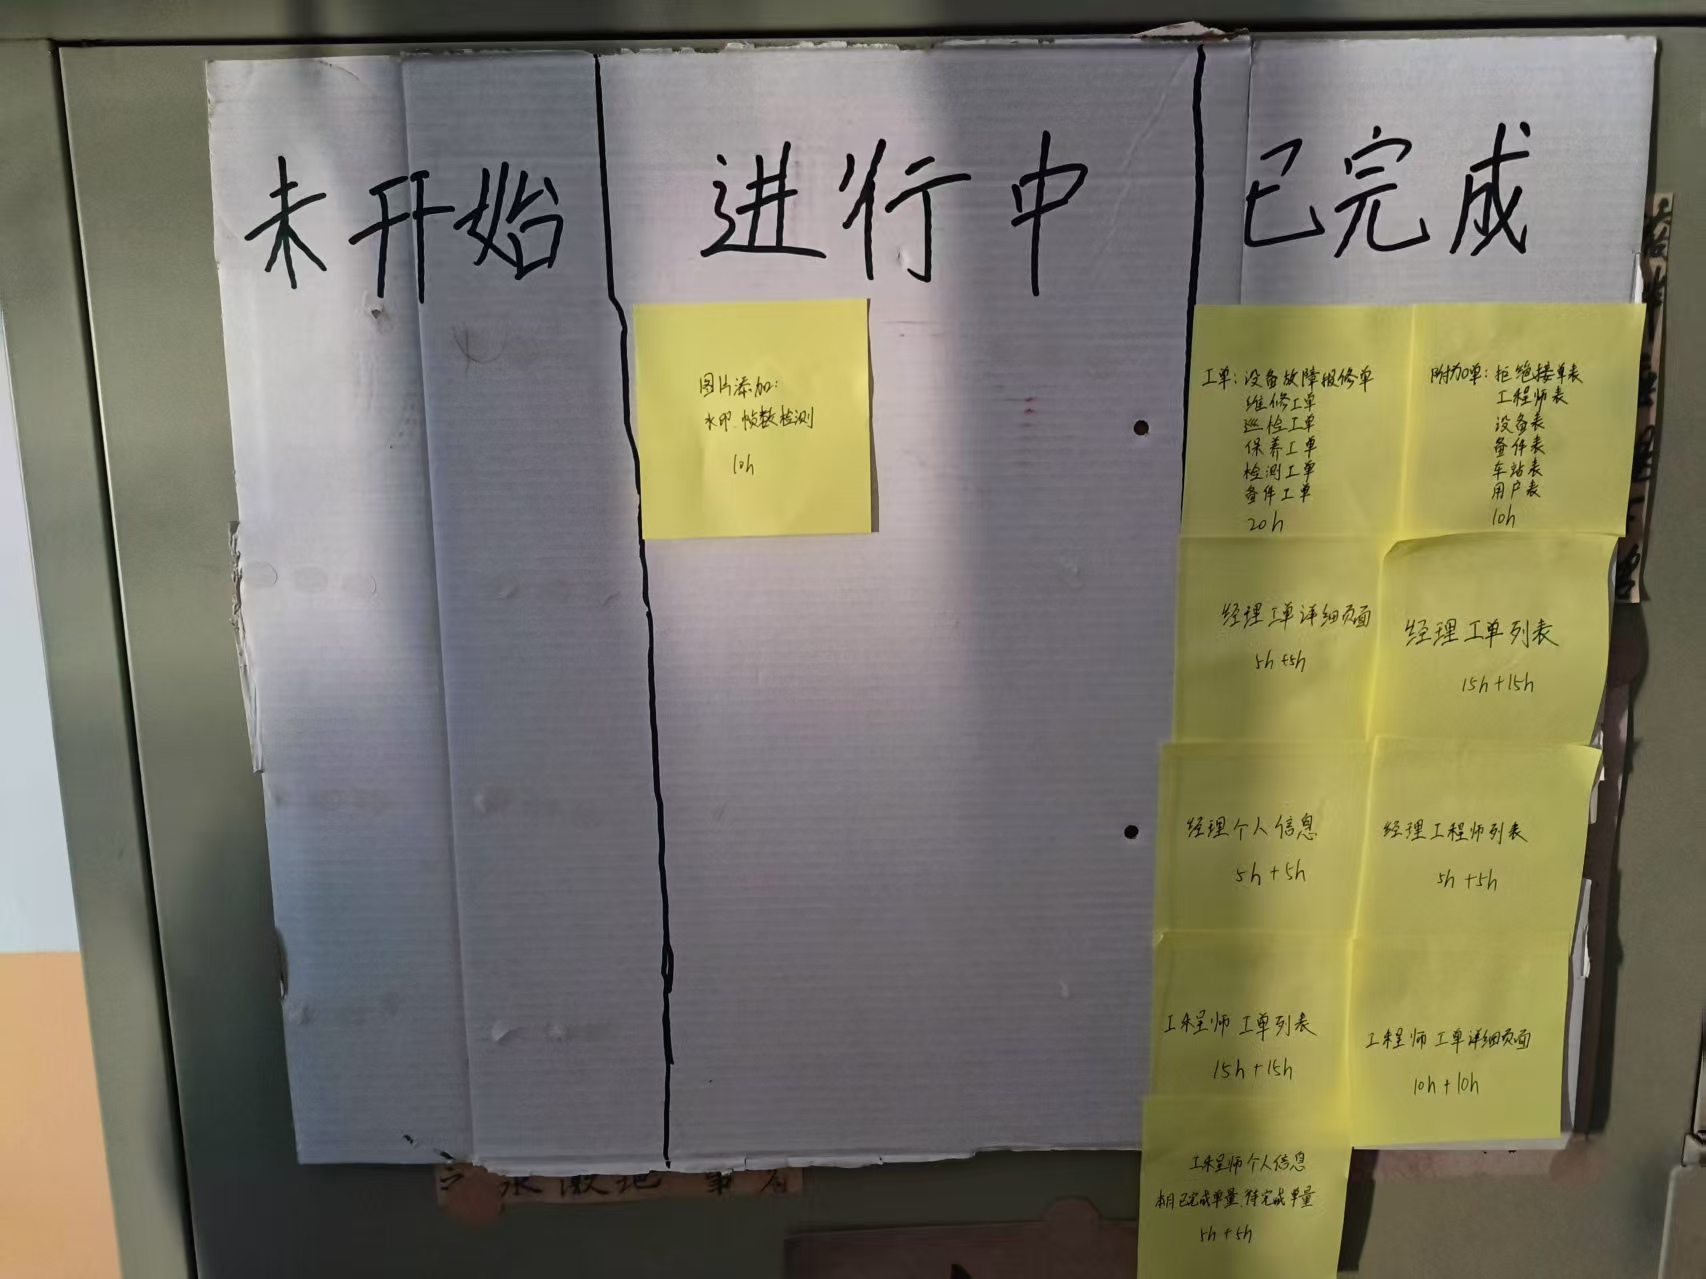 未开始
进行中
已完成
图片添加:
水印、帧数检测
10h
工单: 设备故障报修单
维修工单
巡检工单
保养工单
检测工单
备件工单
20h
附加单: 拒绝接单表
工程师表
设备表
备件表
车站表
用户表
10h
经理工单详细页面
5h+5h
经理工单列表
15h+15h
经理个人信息
5h+5h
经理工程师列表
5h+5h
工程师工单列表
15h+15h
工程师工单详细页面
10h+10h
工程师个人信息
本月已完成单量、待完成单量
5h+5h